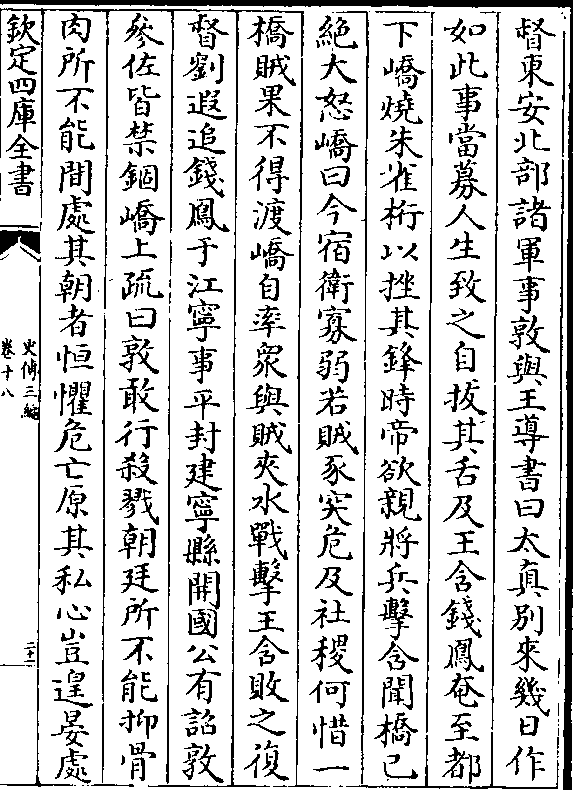 督東安北部諸軍事敦與王導書曰太真別來幾日作
如此事當募人生致之自拔其舌及王含錢鳳奄至都
下嶠燒朱雀桁以挫其鋒時帝欲親將兵擊含聞橋已
絶大怒嶠曰今宿衛寡弱若賊豕突危及社稷何惜一
橋賊果不得渡嶠自率衆與賊夾水戰擊王含敗之復
督劉遐追錢鳳于江寧事平封建寧縣開國公有詔敦
參佐皆禁錮嶠上疏曰敦敢行殺戮朝廷所不能抑骨
肉所不能間處其朝者恒懼危亡原其私心豈遑晏處
欽定四庫全書
史傳三編
卷十八
二十二